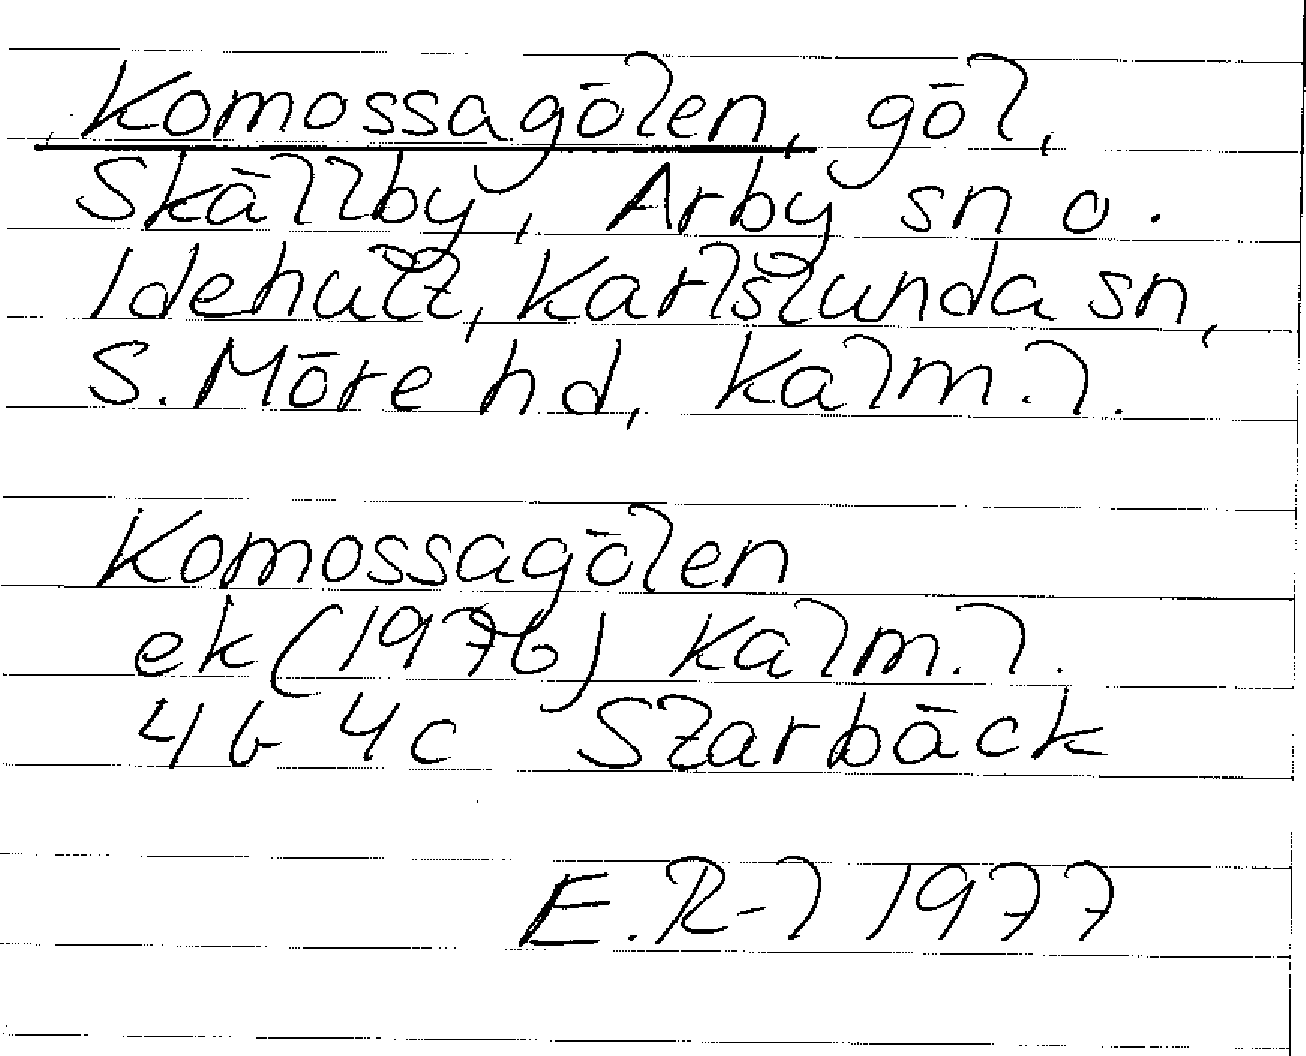 Komossagölen, göl,
Skällby, Arby sn o.
Idehult, Karlslunda sn,
S. Möre hd, Kalm. l.
Komossagölen
ek (1976) Kalm. l.
4G 4c Starbäck
E.R-l 1977